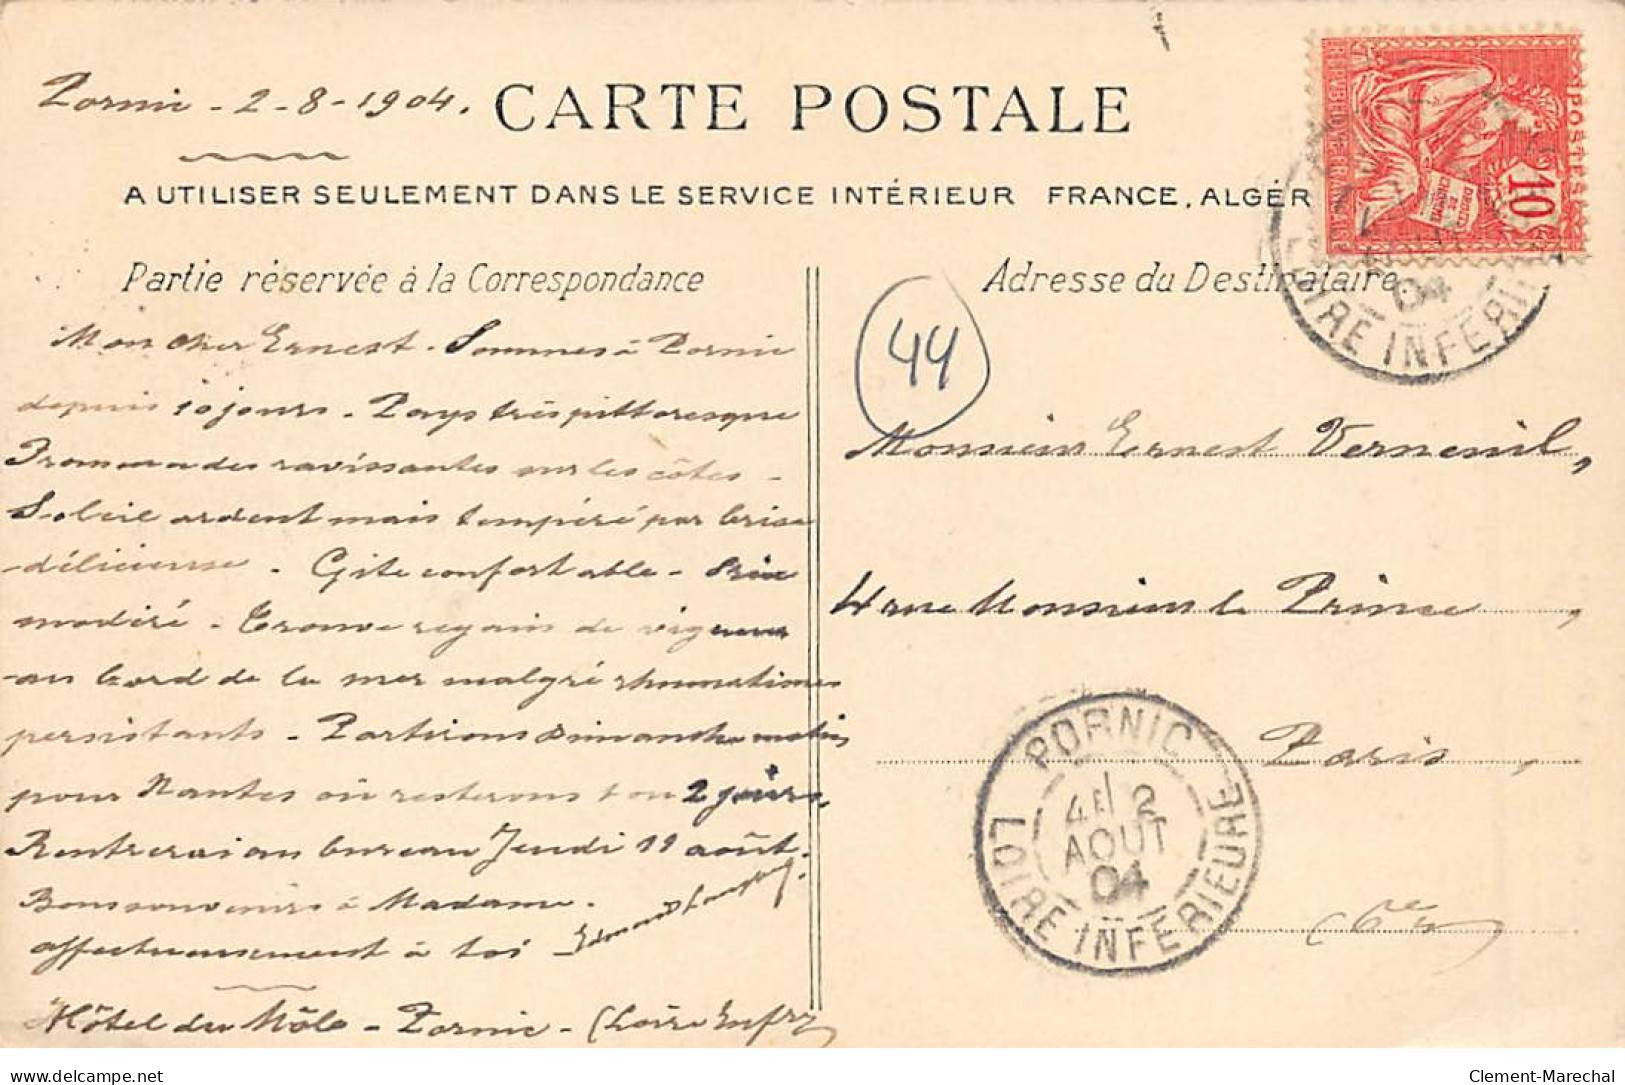 Pornic - 2-8-1904.
CARTE POSTALE
A UTILISER SEULEMENT DANS LE SERVICE INTÉRIEUR FRANCE, ALGÉR
Partie réservée à la Correspondance
Mon cher Ernest - Sommes à Pornic
depuis 10 jours - Pays très pittoresque
Promenades ravissantes sur les côtes -
Soleil ardent mais tempéré par brise
délicieuse - Gîte confortable - Prix
modéré - Trouve regain de vigueur
au bord de la mer malgré rhumatismes
persistants - Partirons Dimanche matin
pour Nantes où resterons 1 ou 2 jours.
Rentrerai au bureau Jeudi 11 août.
Bons souvenirs à Madame.
affectueusement à toi
Edmond
Hôtel du Môle - Pornic - (Loire Infre)
Adresse du Destinataire
44
Monsieur Ernest Verneuil,
4 rue Monsieur le Prince,
Paris,
(6e)
POSTES
REPUBLIQUE FRANCAISE
DROITS DE L'HOMME
10
04
LOIRE INFERIE
PORNIC
4E 2
AOUT
04
LOIRE INFERIEURE
delcampe.net
Clement-Marechal